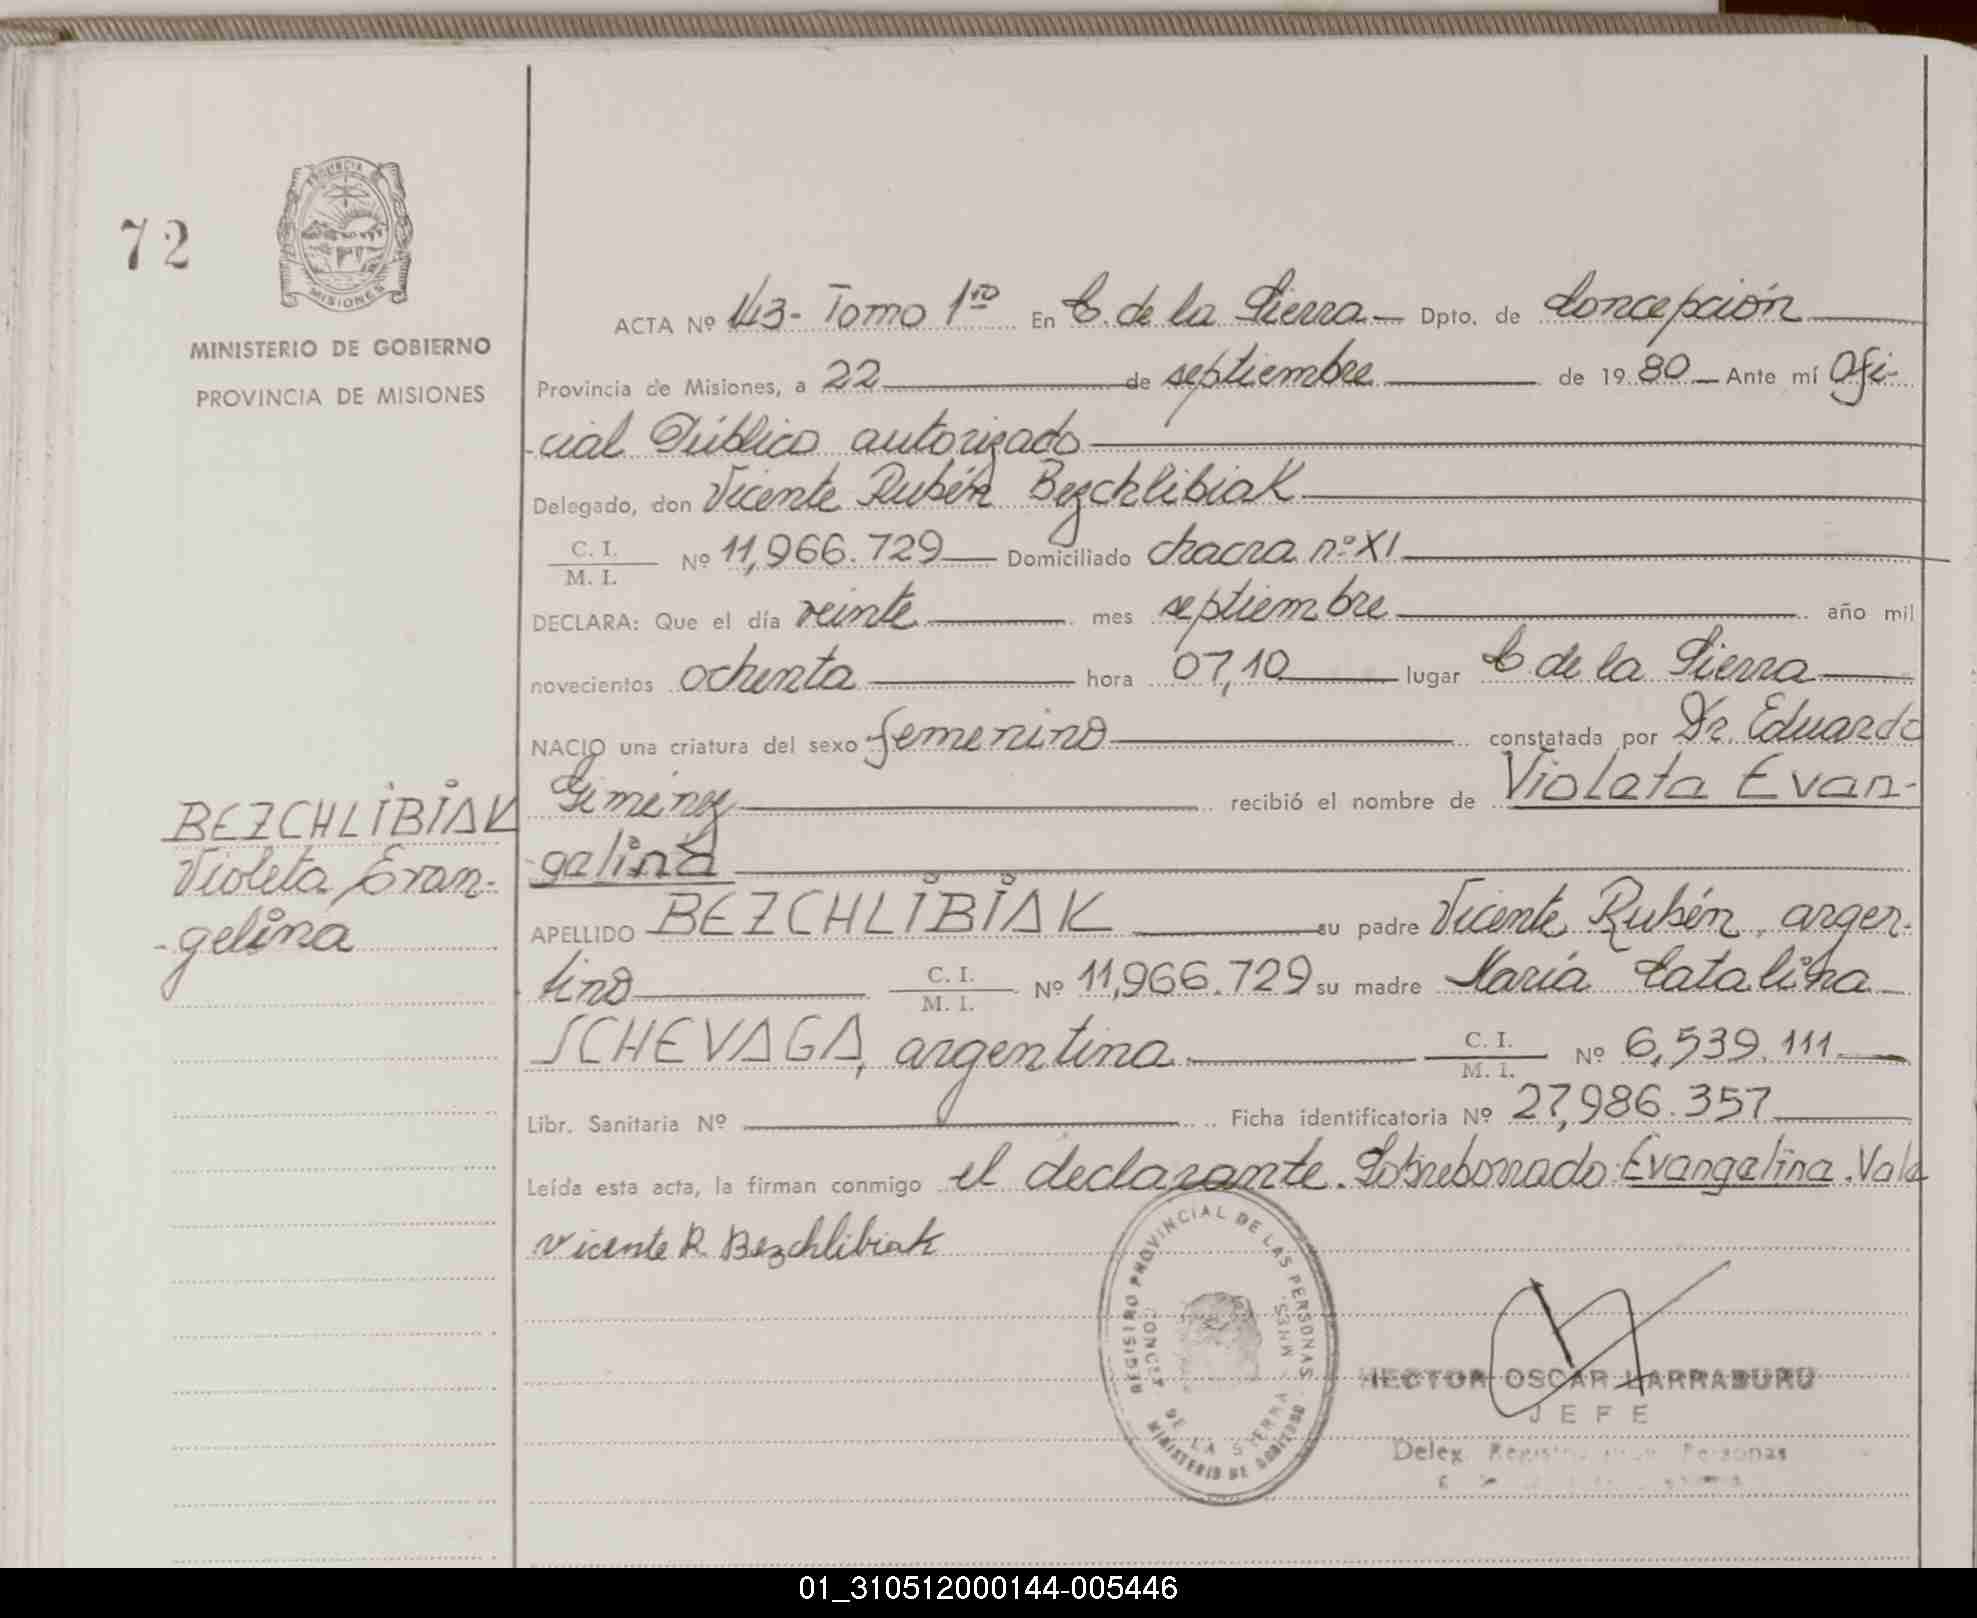 72
PROVINCIA DE
MISIONES
MINISTERIO DE GOBIERNO
PROVINCIA DE MISIONES
ACTA Nº 143- Tomo 1ro En C. de la Sierra Dpto. de Concepción
Provincia de Misiones, a 22 de septiembre de 1980 Ante mí Ofi-
-cial Público autorizado
Delegado, don Vicente Rubén BezchlibiaK
C. I.
M. I. Nº 11,966.729 Domiciliado chacra nº XI
DECLARA: Que el día veinte mes septiembre año mil
novecientos ochenta hora 07,10 lugar C de la Sierra
NACIO una criatura del sexo femenino constatada por Dr. Eduardo
Giménez recibió el nombre de Violeta Evan-
-gelina
BEZCHLIBIAK
Violeta Evan-
-gelina
APELLIDO BEZCHLIBIAK su padre Vicente Rubén, argen-
tino C. I.
M. I. Nº 11,966.729 su madre María Catalina
SCHEVAGA, argentina C. I.
M. I. Nº 6,539.111
Libr. Sanitaria Nº Ficha identificatoria Nº 27,986.357
Leída esta acta, la firman conmigo el declarante. Sobreborrado: Evangelina. Vale
Vicente R. Bezchlibiak
REGISTRO PROVINCIAL DE LAS PERSONAS
CONCEP. DE LA SIERRA MNES.
MINISTERIO DE GOBIERNO
HECTOR OSCAR LARRABURU
JEFE
Deleg. Personas
01_310512000144-005446